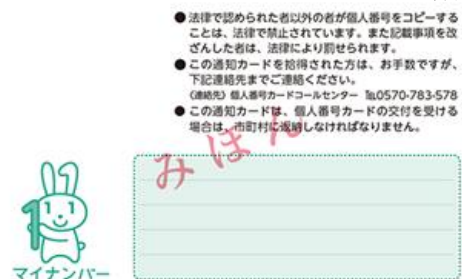 ●法律で認められた者以外の者が個人番号をコピーする
ことは、法律で禁止されています。また記載事項を改
ざんした者は、法律により罰せられます。
●この通知カードを拾得された方は、お手数ですが、
下記連絡先までご連絡ください。
〈連絡先〉個人番号カードコールセンター ℡0570-783-578
●この通知カードは、個人番号カードの交付を受ける
場合は、市町村に返納しなければなりません。
みほん
1
マイナンバー